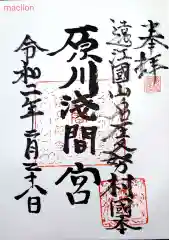 maclion
奉拝
遠江國山名
村國本
原川淺間宮
令和二年二月二十八日